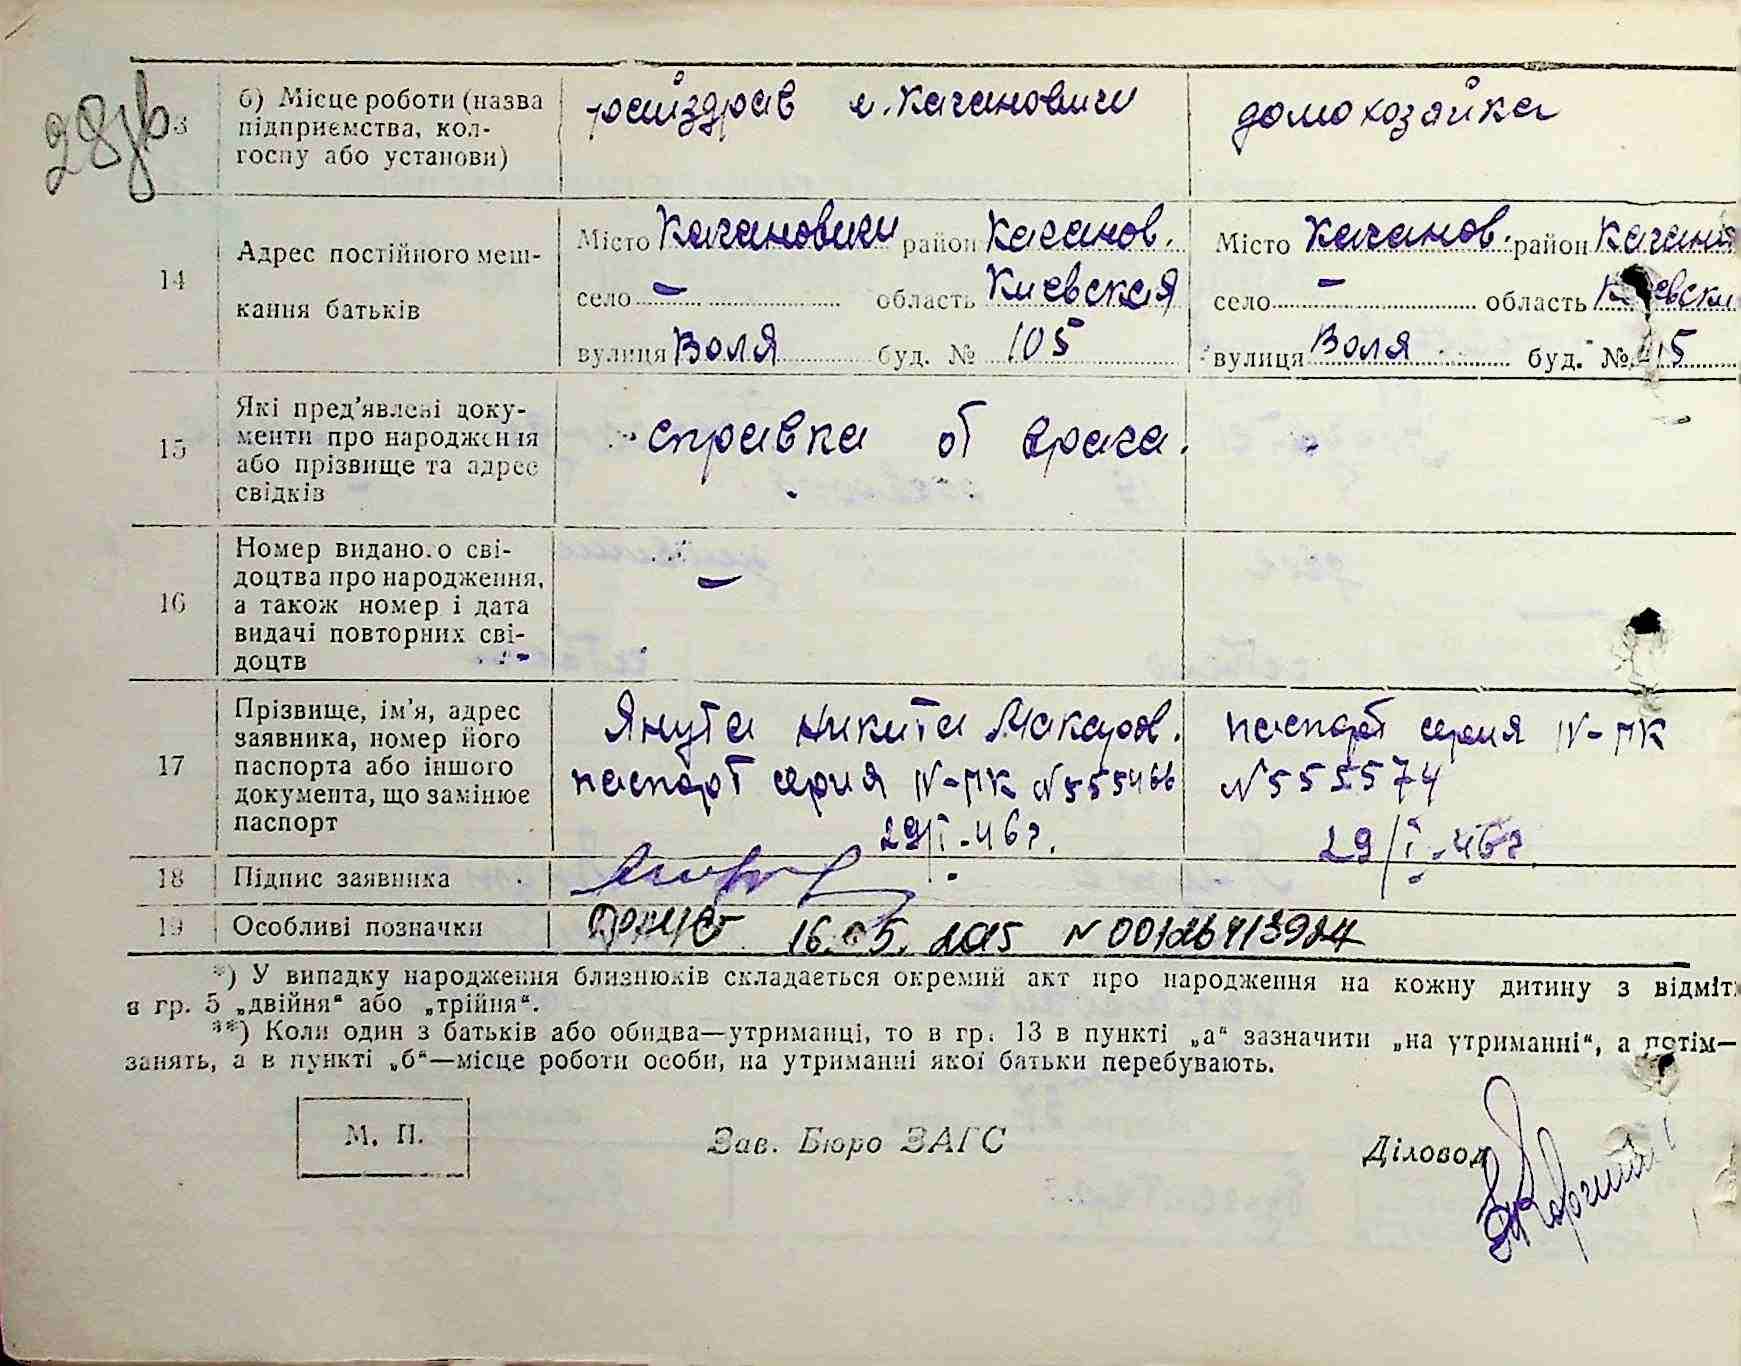 28зв
13 б) Місце роботи (назва підприємства, колгоспу або установи) райздрав м. Кагановичи домохозяйка
14 Адрес постійного мешкання батьків
Місто Кагановичи район Каганов. Місто Каганов. район Кагано
село – область Киевская село – область Киевска
вулиця Воля буд. № 105 вулиця Воля буд. №
15 Які пред'явлені документи про народження або прізвище та адрес свідків справка от врача.
16 Номер виданого свідоцтва про народження, а також номер і дата видачі повторних свідоцтв –
17 Прізвище, ім'я, адрес заявника, номер його паспорта або іншого документа, що замінює паспорт
Янута Никита Макаров. паспорт серия IV-ПК
паспорт серия IV-ПК №555466 №555574
29/I-46г. 29/I-46г.
18 Підпис заявника
19 Особливі позначки 16.05.2015 N 00126413984
*) У випадку народження близнюків складається окремий акт про народження на кожну дитину з відміт
в гр. 5 „двійня“ або „трійня“.
**) Коли один з батьків або обидва—утриманці, то в гр. 13 в пункті „а“ зазначити „на утриманні“, а потім—
занять, а в пункті „б“—місце роботи особи, на утриманні якої батьки перебувають.
М. П. Зав. Бюро ЗАГС Діловод